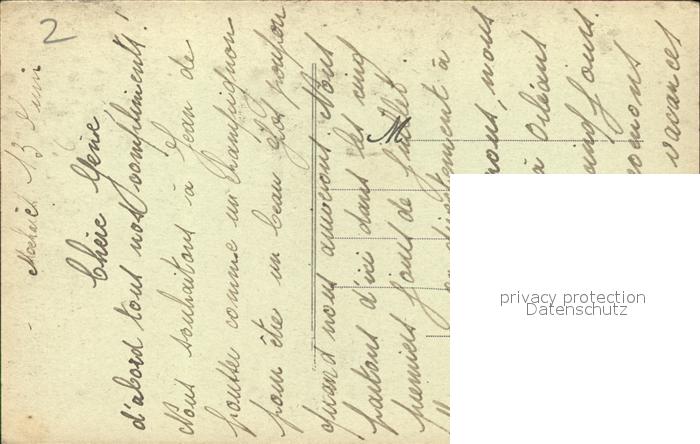 2
13 Juin
Chère Génie
d'abord tous nos compliments!
Nous souhaitons à Jean de
pousser comme un champignon
pour être un beau gros poupon
quand nous arriverons. Nous
partons d'ici dans les cinq
premiers jours de Juillet.
directement à
nous, nous
à Orléans
cinq jours.
vacances
M
privacy protection
Datenschutz